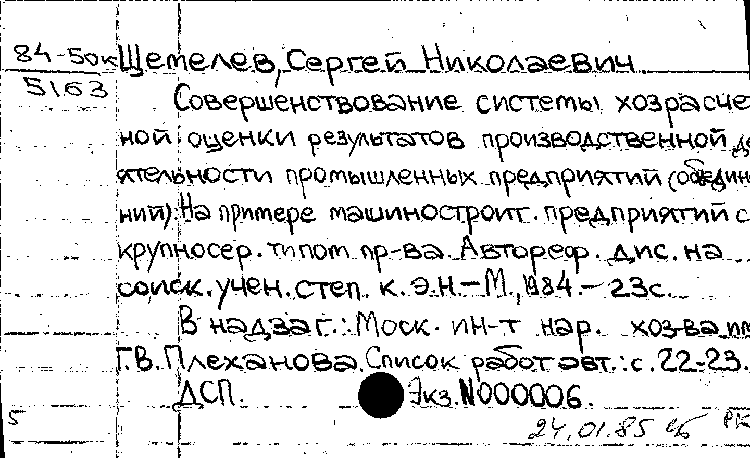 84-50к Щетелев, Сергей Николаевич
5163
Совершенствование системы хозрасче
ной оценки результатов производственной де
ятельности промышленных предприятий (объедин
ний): На примере машиностроит. предприятий с
крупносер. типом пр-ва. Автореф. дис. на
соиск. учен. степ. к.э.н. – М., 1984. – 23с.
В надзаг.: Моск. ин-т нар. хоз-ва им
Г.В. Плеханова. Список работ авт.: с. 22-23.
ДСП. Экз. N000006.
5
24.01.85